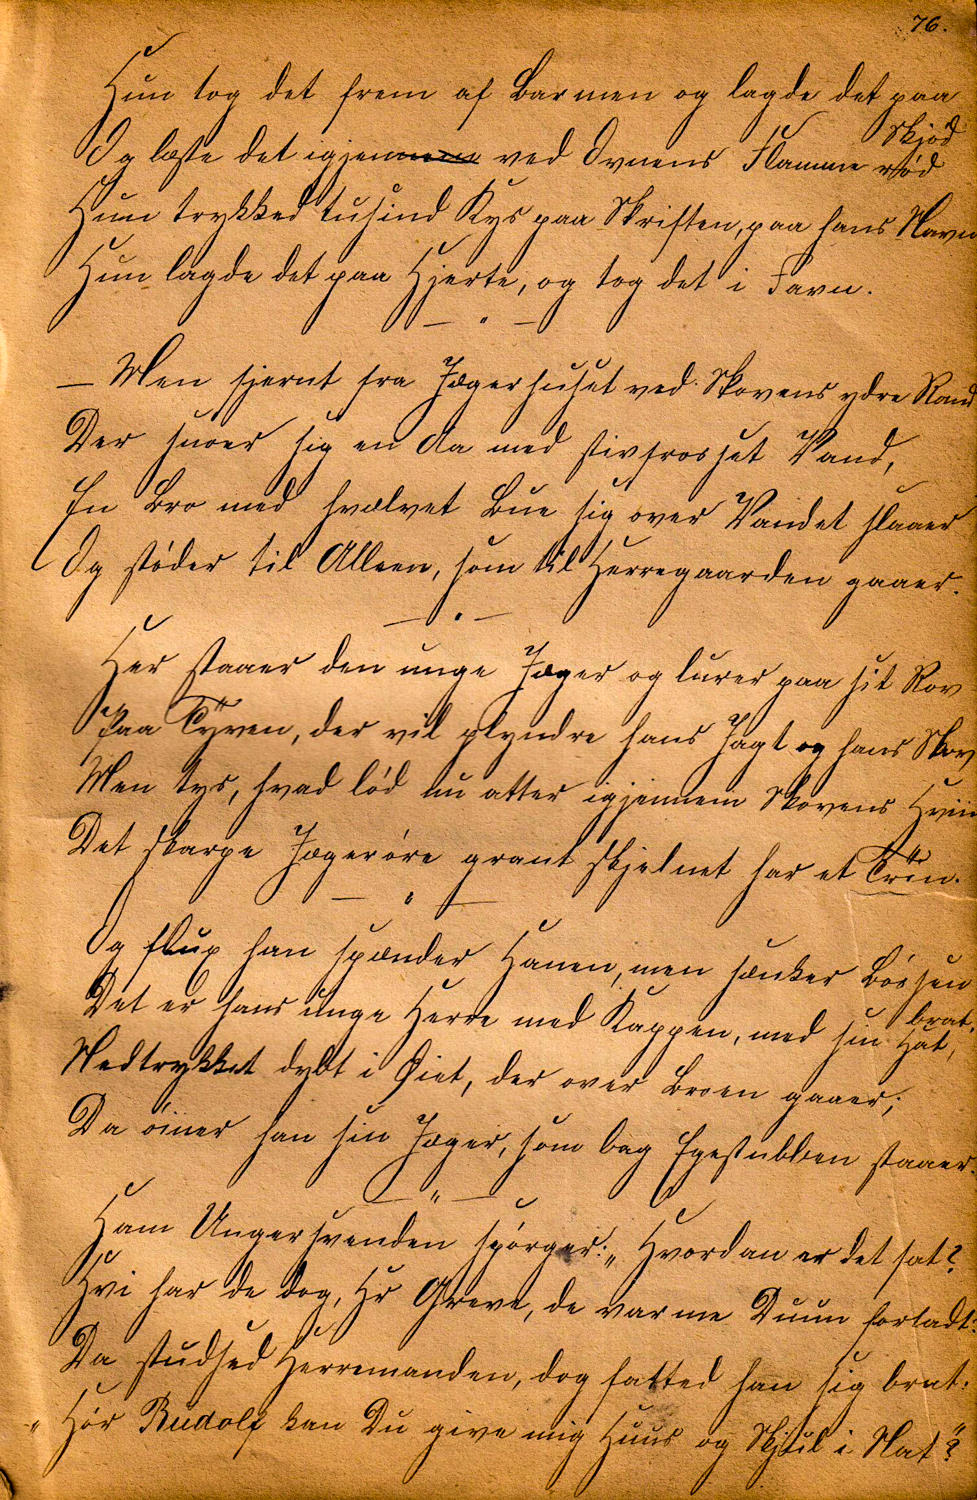 76.
Hun tog det frem af Barmen og lagde det paa
Skjød
Og læste det igjennem ved Ovnens Flamme rød
Hun trykked tusind Kys paa Skriften, paa hans Navn
Hun lagde det paa Hjerte, og tog det i Favn.
— " —
— Men fjernt fra Jægerhuset ved Skovens ydre Rand
Der snoer sig en Aa med stivfrosset Vand,
En Bro med hvælvet Bue sig over Vandet slaaer
Og støder til Alleen, som til Herregaarden gaaer.
— " —
Her staaer den unge Jæger og lurer paa sit Rov
Paa Tyven, der vil plyndre hans Jagt og hans Skov
Men tys, hvad lød nu atter igjennem Skovens Hviin
Det skarpe Jægerøre grant skjelnet har et Trin.
— " —
Og flux han spænder Hanen, men sænker Bøssen
brat.
Det er hans unge Herre med Kappen, med sin Hat,
Nedtrykket dybt i Øiet, der over Broen gaaer;
Da øiner han sin Jæger, som bag Egestubben staaer.
— " —
Ham Ungersvenden spørger: „Hvordan er det fat?
Hvi har de dog, Hr Greve, de varme Duun forladt?
Da studsed Herremanden, dog fatted han sig brat:
„Hør Rudolf kan Du give mig Huus og Skjul i Nat"?